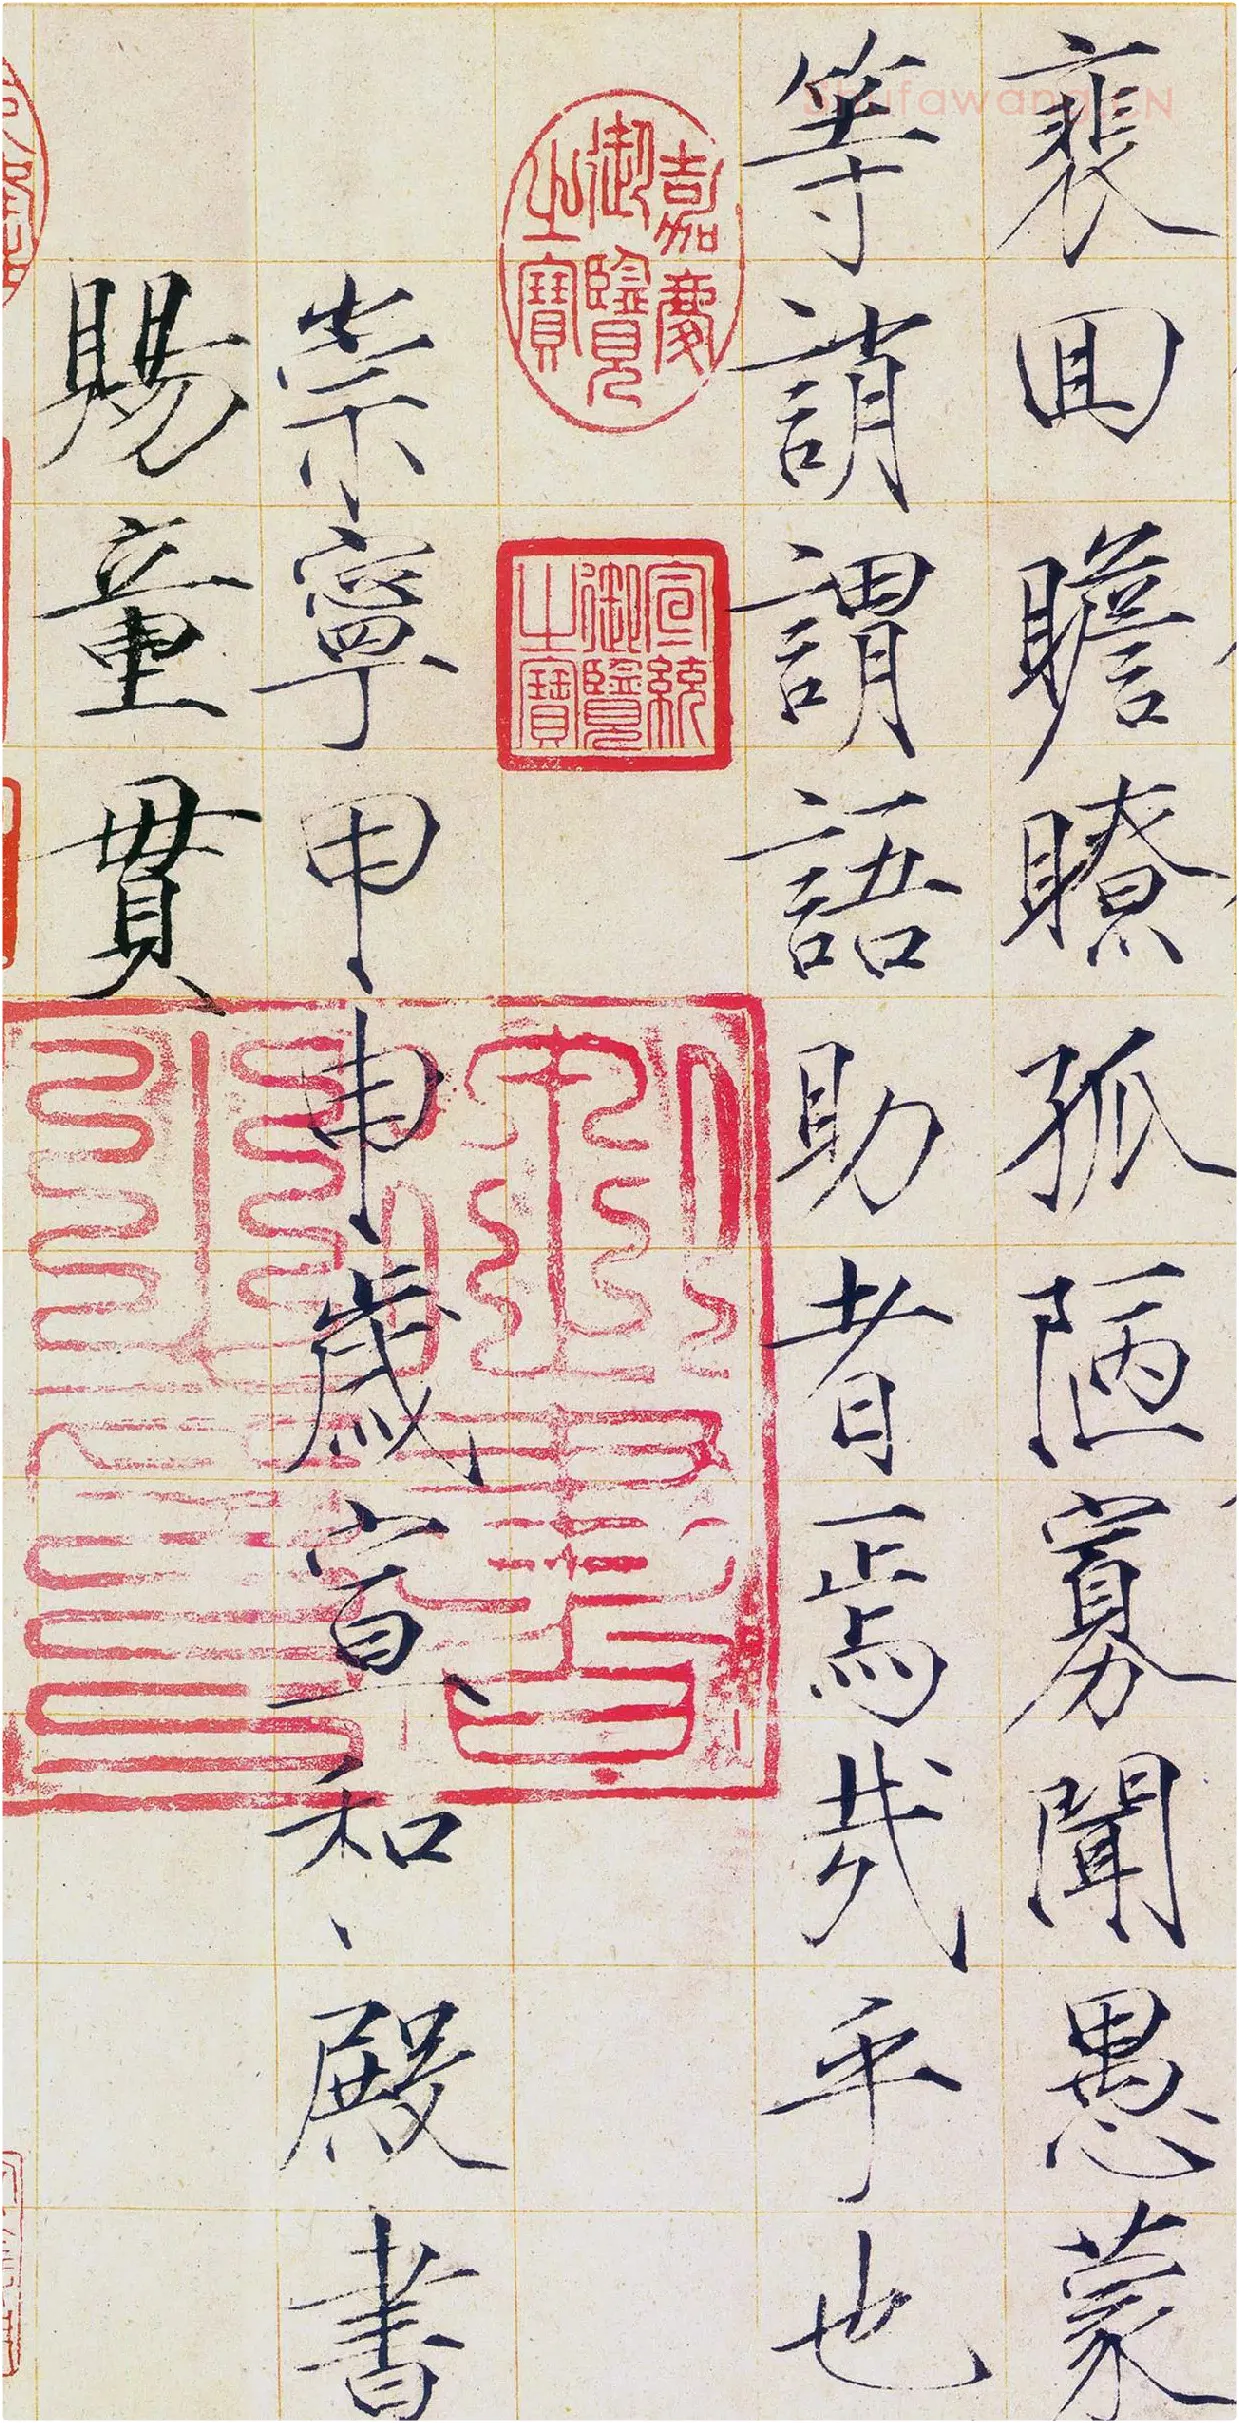 裵回瞻瞭孤陋寡聞愚蒙
等誚謂語助者焉哉乎也
嘉慶
御覽
之寶
宣統
御覽
之寶
崇寧甲申歲宣和殿書
賜童貫
Shufawang.CN